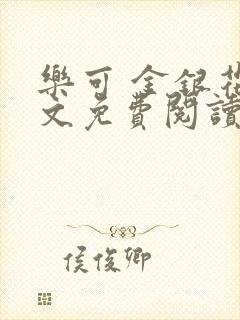 樂可 金銀花
文免費閱讀
侯俊卿